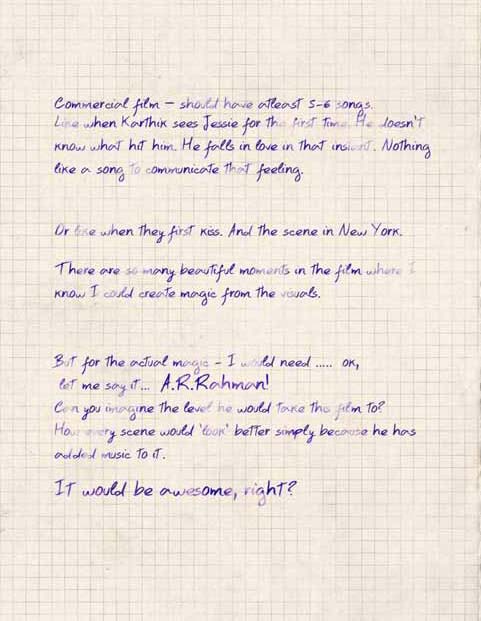 Commercial film – should have atleast 5-6 songs.
Like when Karthik sees Jessie for the first time. He doesn't
know what hit him. He falls in love in that instant. Nothing
like a song to communicate that feeling.
Or like when they first kiss. And the scene in New York.
There are so many beautiful moments in the film where I
know I could create magic from the visuals.
But for the actual magic - I would need ..... ok,
let me say it... A.R.Rahman!
Can you imagine the level he would take this film to?
How every scene would 'look' better simply because he has
added music to it.
It would be awesome, right?